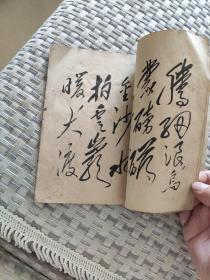 腾细浪乌
蒙磅礴
金沙水
拍云崖
暖大渡